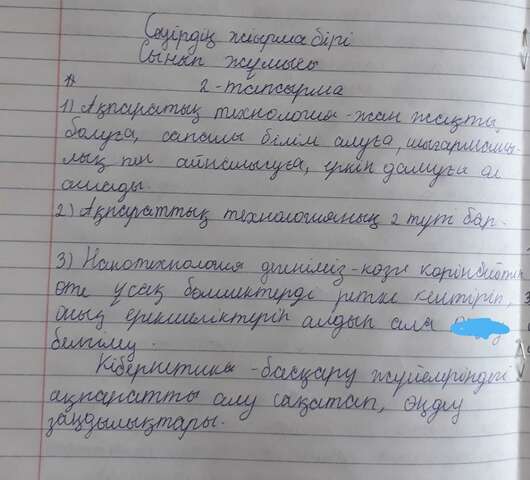 Сәуірдің жиырма бірі
Сынып жұмысы
2-тапсырма
1) Ақпараттық технология - жан жақты
болуға, сапалы білім алуға, шығармашы-
лық пен айналысуға, еркін дамуға ал
ашады.
2) Ақпараттық технологияның 2 түрі бар.
3) Нанотехнология дегеніміз - көзге көрінбейтін
өте ұсақ бөлшектерді ретке келтіріп,
оның ерекшеліктерін алдын ала
белгілеу.
Кибернетика - басқару жүйелеріндегі
ақпаратты алу сақатап, өңдеу
заңдылықтары.